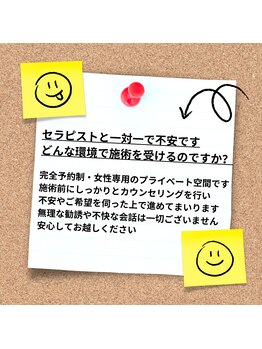 セラピストと一対一で不安です
どんな環境で施術を受けるのですか?
完全予約制・女性専用のプライベート空間です
施術前にしっかりとカウンセリングを行い
不安やご希望を伺った上で進めてまいります
無理な勧誘や不快な会話は一切ございません
安心してお越しください